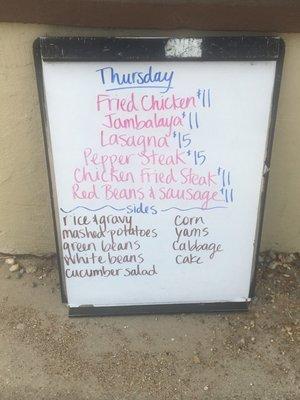 Thursday
Fried Chicken $11
Jambalaya $11
Lasagna $15
Pepper Steak $15
Chicken Fried Steak $11
Red Beans & Sausage $11
sides
rice & gravy
mashed potatoes
green beans
White beans
cucumber salad
Corn
Yams
Cabbage
Cake